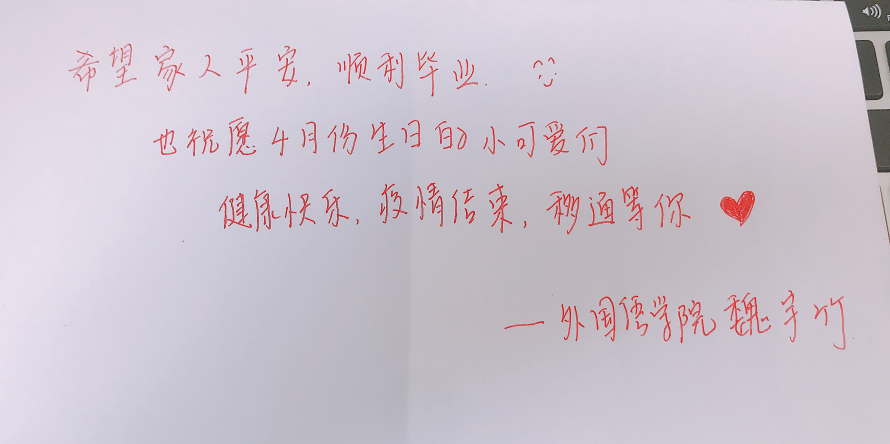 希望家人平安，顺利毕业.
也祝愿4月份生日的小可爱们
健康快乐，疫情结束，移通等你
—外国语学院魏宇竹